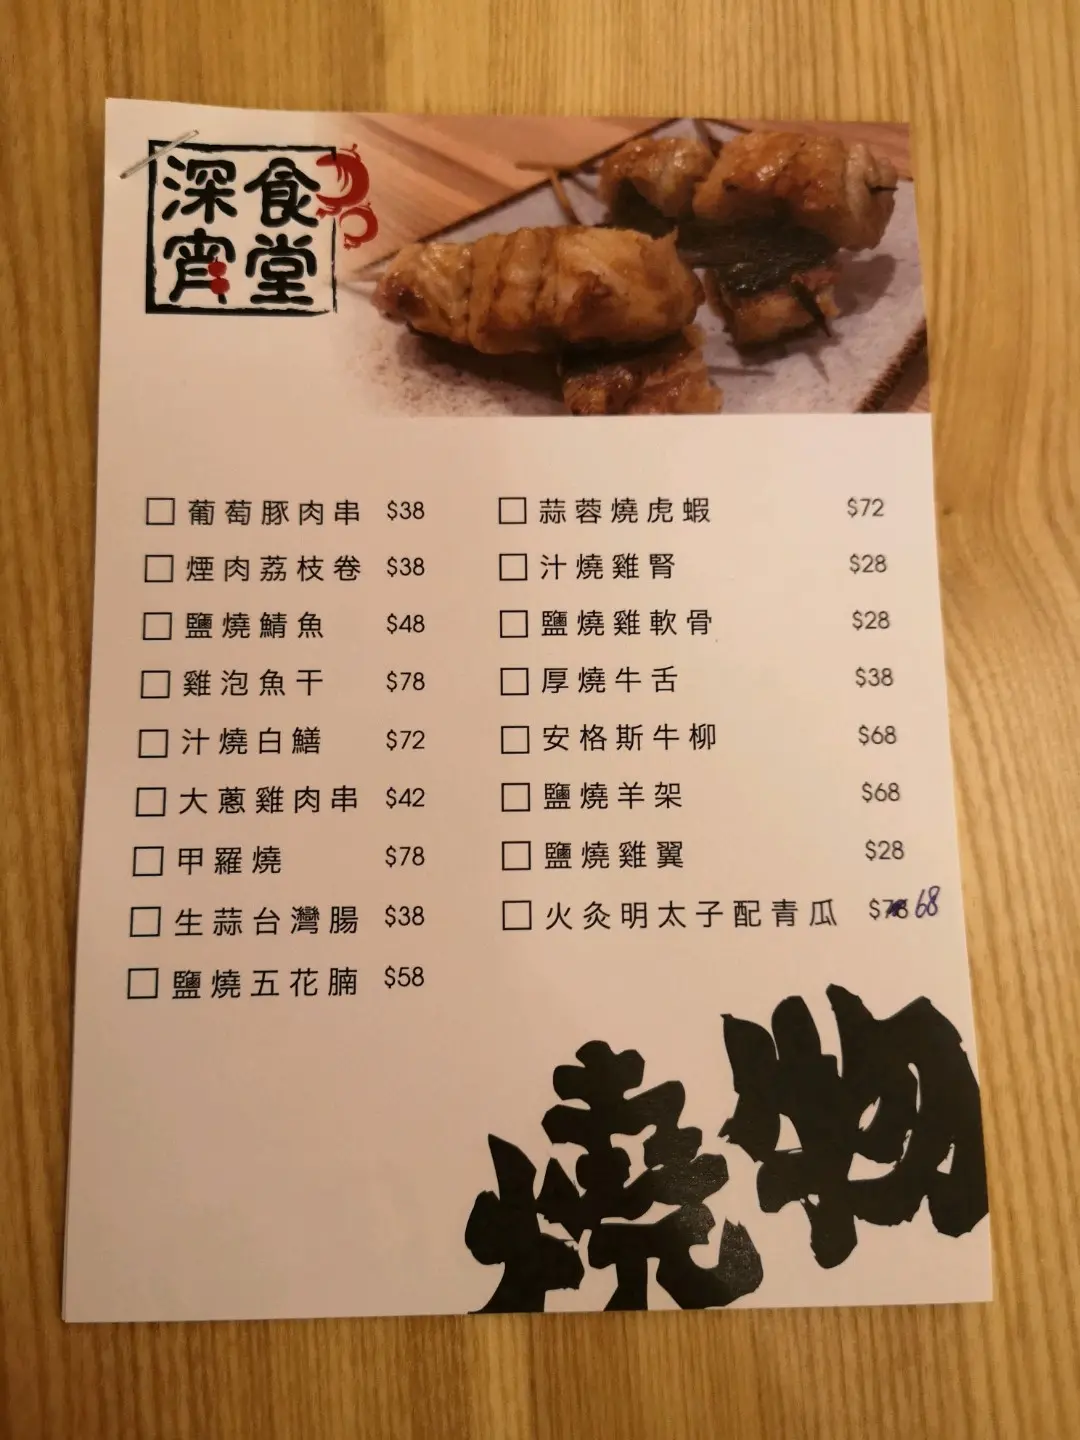 深宵食堂
葡萄豚肉串 $38
煙肉荔枝卷 $38
鹽燒鯖魚 $48
雞泡魚干 $78
汁燒白鱔 $72
大蔥雞肉串 $42
甲羅燒 $78
生蒜台灣腸 $38
鹽燒五花腩 $58
蒜蓉燒虎蝦 $72
汁燒雞腎 $28
鹽燒雞軟骨 $28
厚燒牛舌 $38
安格斯牛柳 $68
鹽燒羊架 $68
鹽燒雞翼 $28
火灸明太子配青瓜 $78 68
燒物